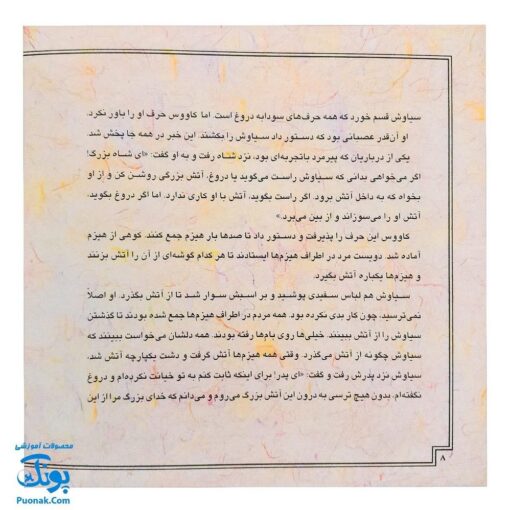 سیاوش قسم خورد که همه حرف‌های سودابه دروغ است. اما کاووس حرف او را باور نکرد.
او آن‌قدر عصبانی بود که دستور داد سیاوش را بکشند. این خبر در همه جا پخش شد.
یکی از درباریان که پیرمرد باتجربه‌ای بود، نزد شاه رفت و به او گفت: «ای شاه بزرگ!
اگر می‌خواهی بدانی که سیاوش راست می‌گوید یا دروغ، آتش بزرگی روشن کن و از او
بخواه که به داخل آتش برود. اگر راست بگوید، آتش با او کاری ندارد. اما اگر دروغ بگوید،
آتش او را می‌سوزاند و از بین می‌برد.»
کاووس این حرف را پذیرفت و دستور داد تا صدها بار هیزم جمع کنند. کوهی از هیزم
آماده شد. دویست مرد در اطراف هیزم‌ها ایستادند تا هر کدام گوشه‌ای از آن را آتش بزنند
و هیزم‌ها یکباره آتش بگیرد.
سیاوش هم لباس سفیدی پوشید و بر اسبش سوار شد تا از آتش بگذرد. او اصلاً
نمی‌ترسید، چون کار بدی نکرده بود. همه مردم در اطراف هیزم‌ها جمع شده بودند تا گذشتن
سیاوش را از آتش ببینند. خیلی‌ها روی بام‌ها رفته بودند. همه دلشان می‌خواست ببینند که
سیاوش چگونه از آتش می‌گذرد. وقتی همه هیزم‌ها آتش گرفت و دشت یکپارچه آتش شد،
سیاوش نزد پدرش رفت و گفت: «ای پدر! برای اینکه ثابت کنم به تو خیانت نکرده‌ام و دروغ
نگفته‌ام، بدون هیچ ترسی به درون این آتش بزرگ می‌روم و می‌دانم که خدای بزرگ مرا از این
۸
محصولات آموزشی
پونک
Puonak.Com